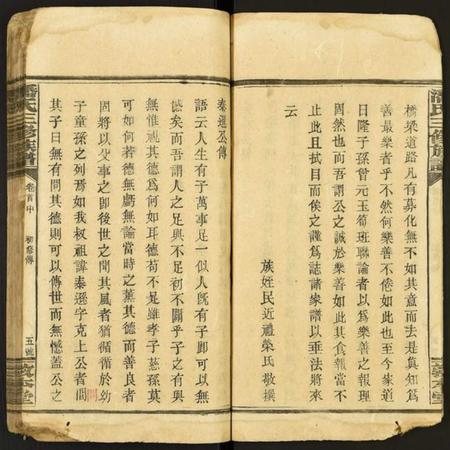 潘氏三修族譜
橋梁道路凡有募化無不如其意而去是真知為
善最樂者乎不然何樂善不倦如此也至今家道
日隆子孫曾元玉筍班聯論者以為樂善之報理
固然也而吾謂公之誠於樂善如此其食報當不
止此且拭目而俟之謹為誌諸家譜以垂法將來
云
族姪民近禮榮氏敬撰
敦本堂
秦遜公傳
語云人生有子萬事足一似人既有子即可以無
憾矣而吾謂人之足與不足初不關乎子之有與
無惟視其德為何如耳德苟不足雖孝子慈孫莫
可如何若德無虧無論當時之薰其德而善良者
固將以父事之即後世之聞其風者猶循循於幼
子童孫之列焉如我叔祖諱秦遜字克上公者
其子曰無有問其德則可以傳世而無憾蓋公之
潘氏三修族譜
卷首中
初卷傳
五號
敦本堂